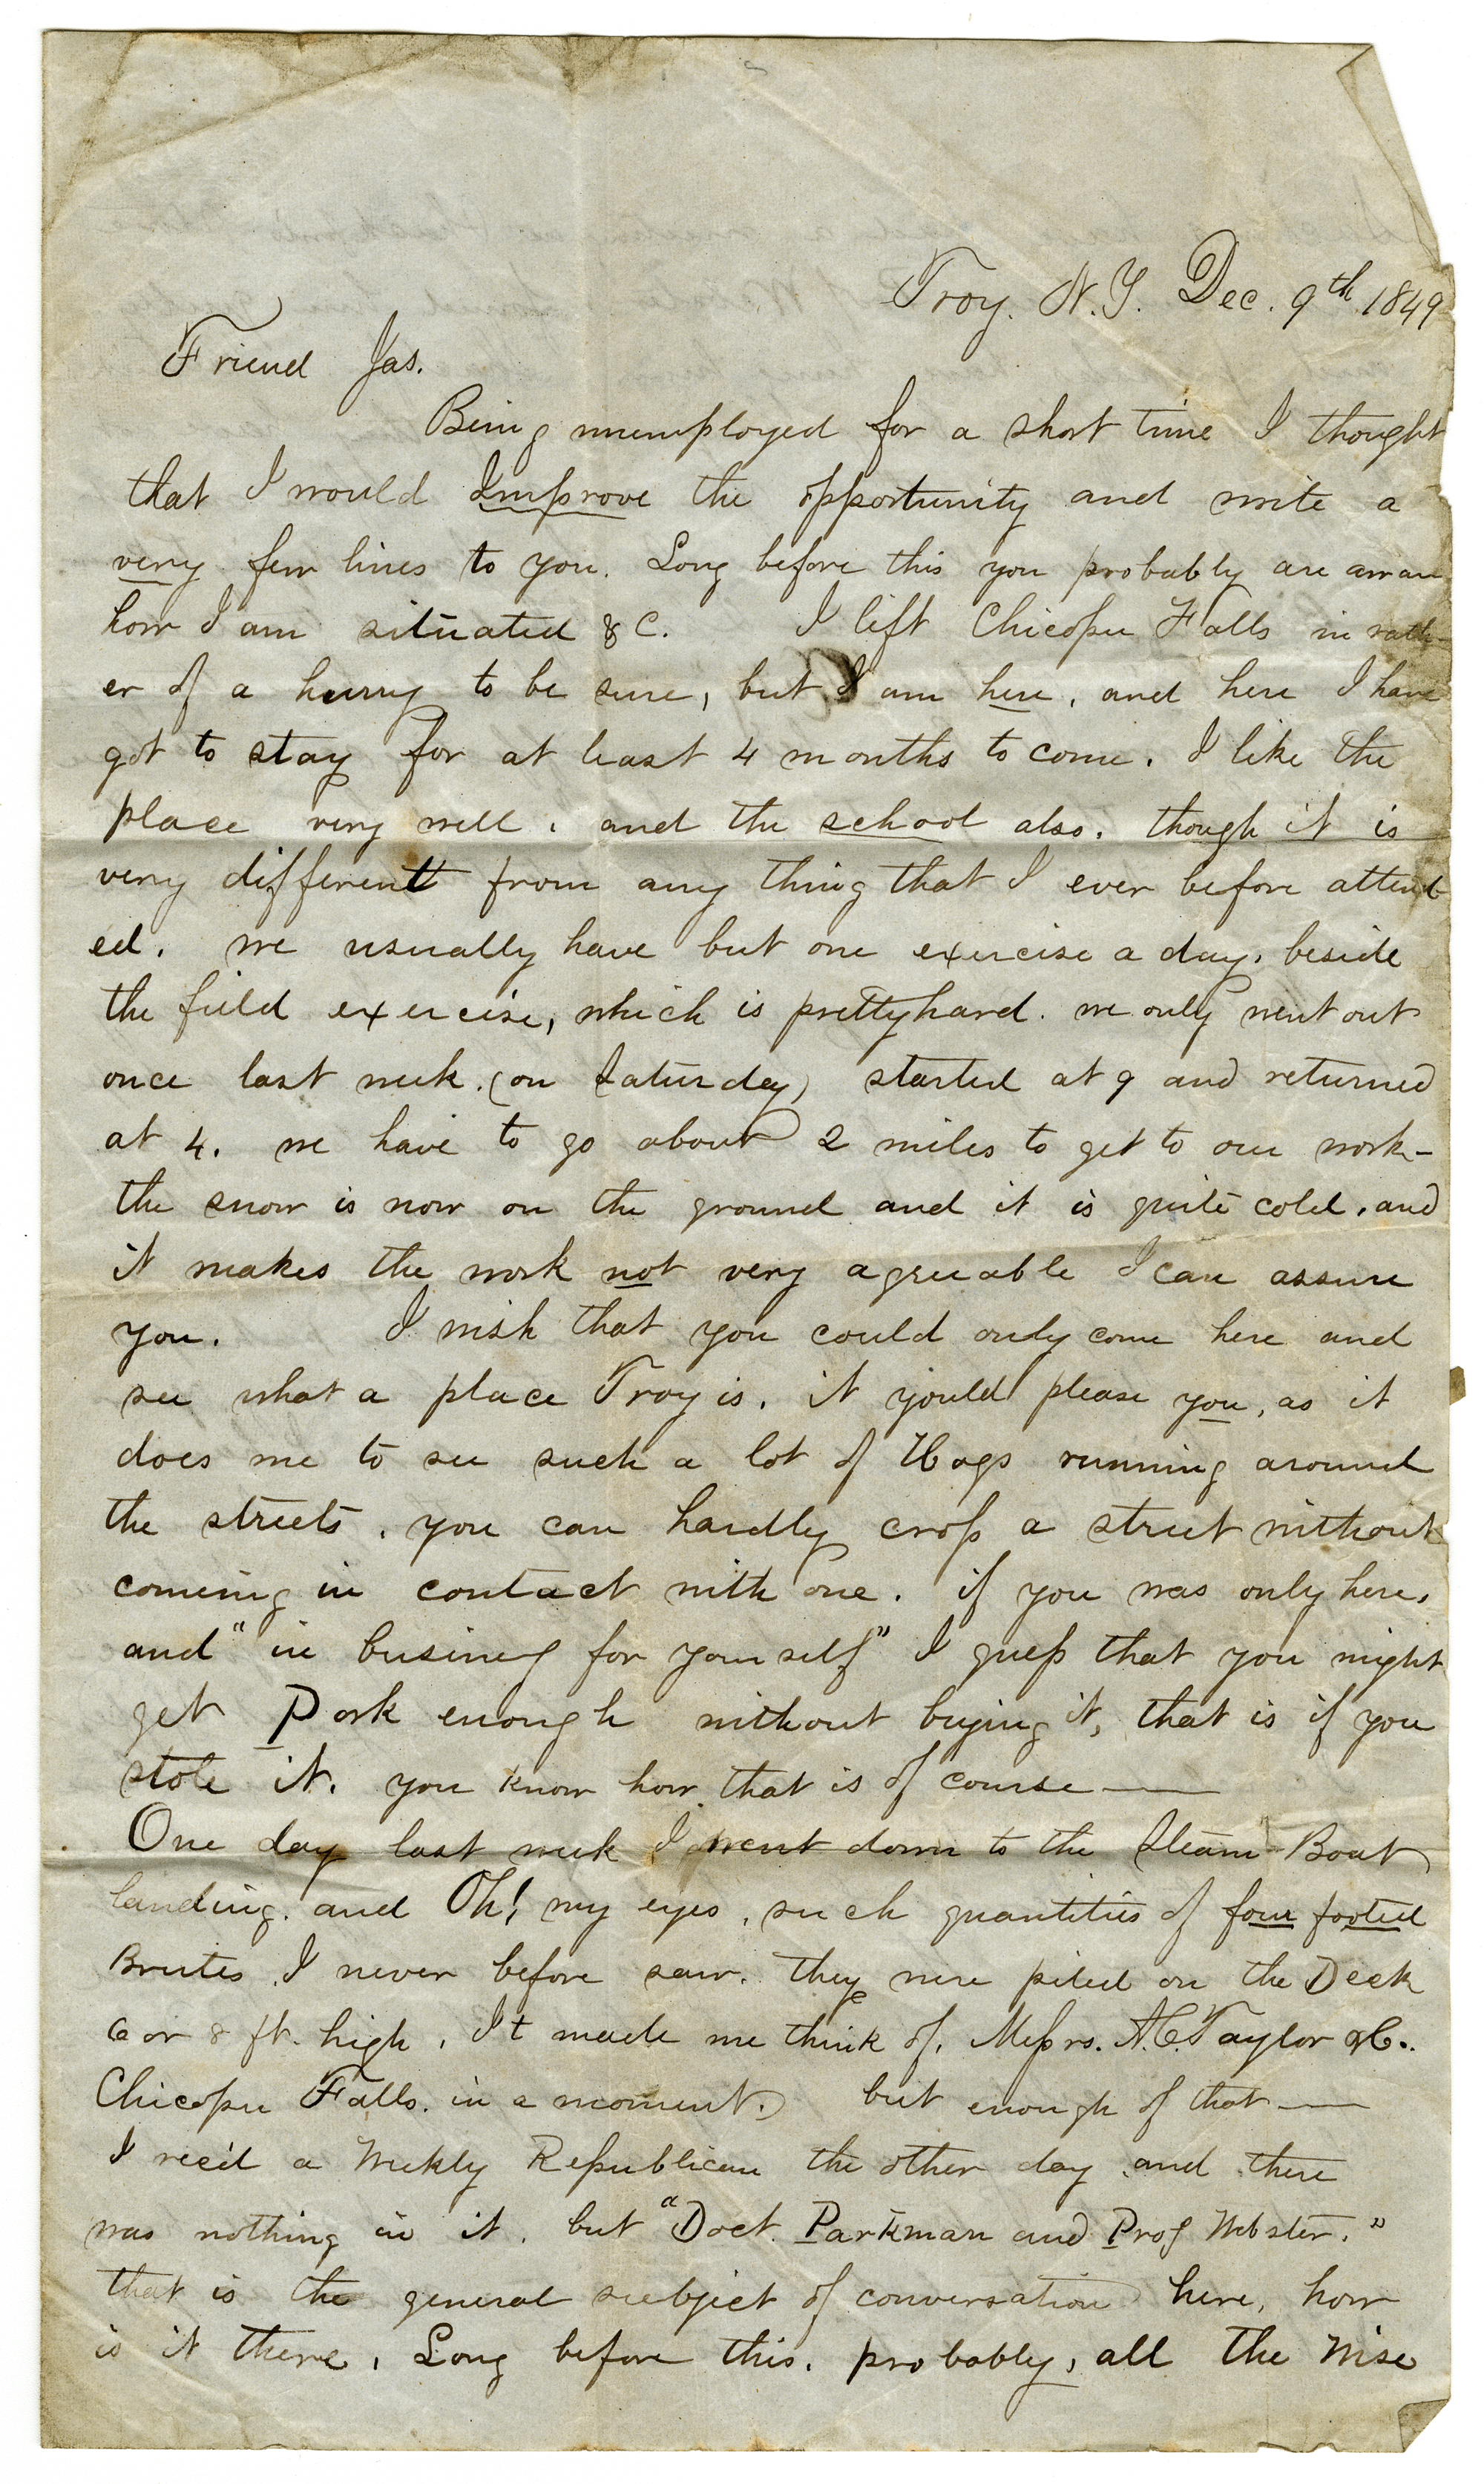 Troy. N.Y. Dec. 9th 1849
Friend Jas.
Being unemployed for a short time I thought
that I would Improve the opportunity and write a
very few lines to you. Long before this you probably are aware
how I am situated &c. I left Chicopee Falls in rath-
er of a hurry to be sure, but I am here, and here I have
got to stay for at least 4 months to come. I like the
place very well, and the school also, though it is
very different from any thing that I ever before attend-
ed. we usually have but one exercise a day, beside
the field exercise, which is pretty hard. we only went out
once last week. (on Saturday) started at 9 and returned
at 4. we have to go about 2 miles to get to our work-
the snow is now on the ground and it is quite cold, and
it makes the work not very agreeable I can assure
you. I wish that you could only come here and
see what a place Troy is. it yould please you, as it
does me to see such a lot of Hogs running around
the streets, you can hardly cross a street without
comeing in contact with one. if you was only here,
and "in business for yourself" I guess that you might
get Pork enough without buying it, that is if you
stole it. you know how that is of course —
One day last week I went down to the Steam-Boat
landing. and Oh! my eyes, such quantities of four footed
Brutes I never before saw. they were piled on the Deck
6 or 8 ft. high, It made me think of, Messrs. A.C. Taylor & C..
Chicopee Falls. in a moment. but enough of that —
I rec'd a Weekly Republican the other day and there
was nothing in it, but "Doct. Parkman and Prof Webster."
that is the general subject of conversation here, how
is it there, Long before this, probably, all the Wise